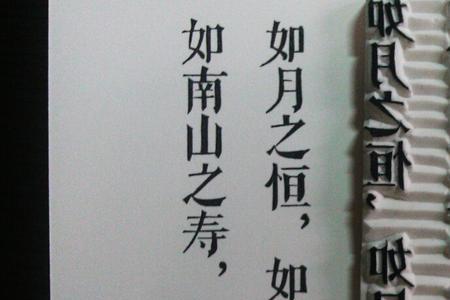 如月之恒，如
如南山之寿，